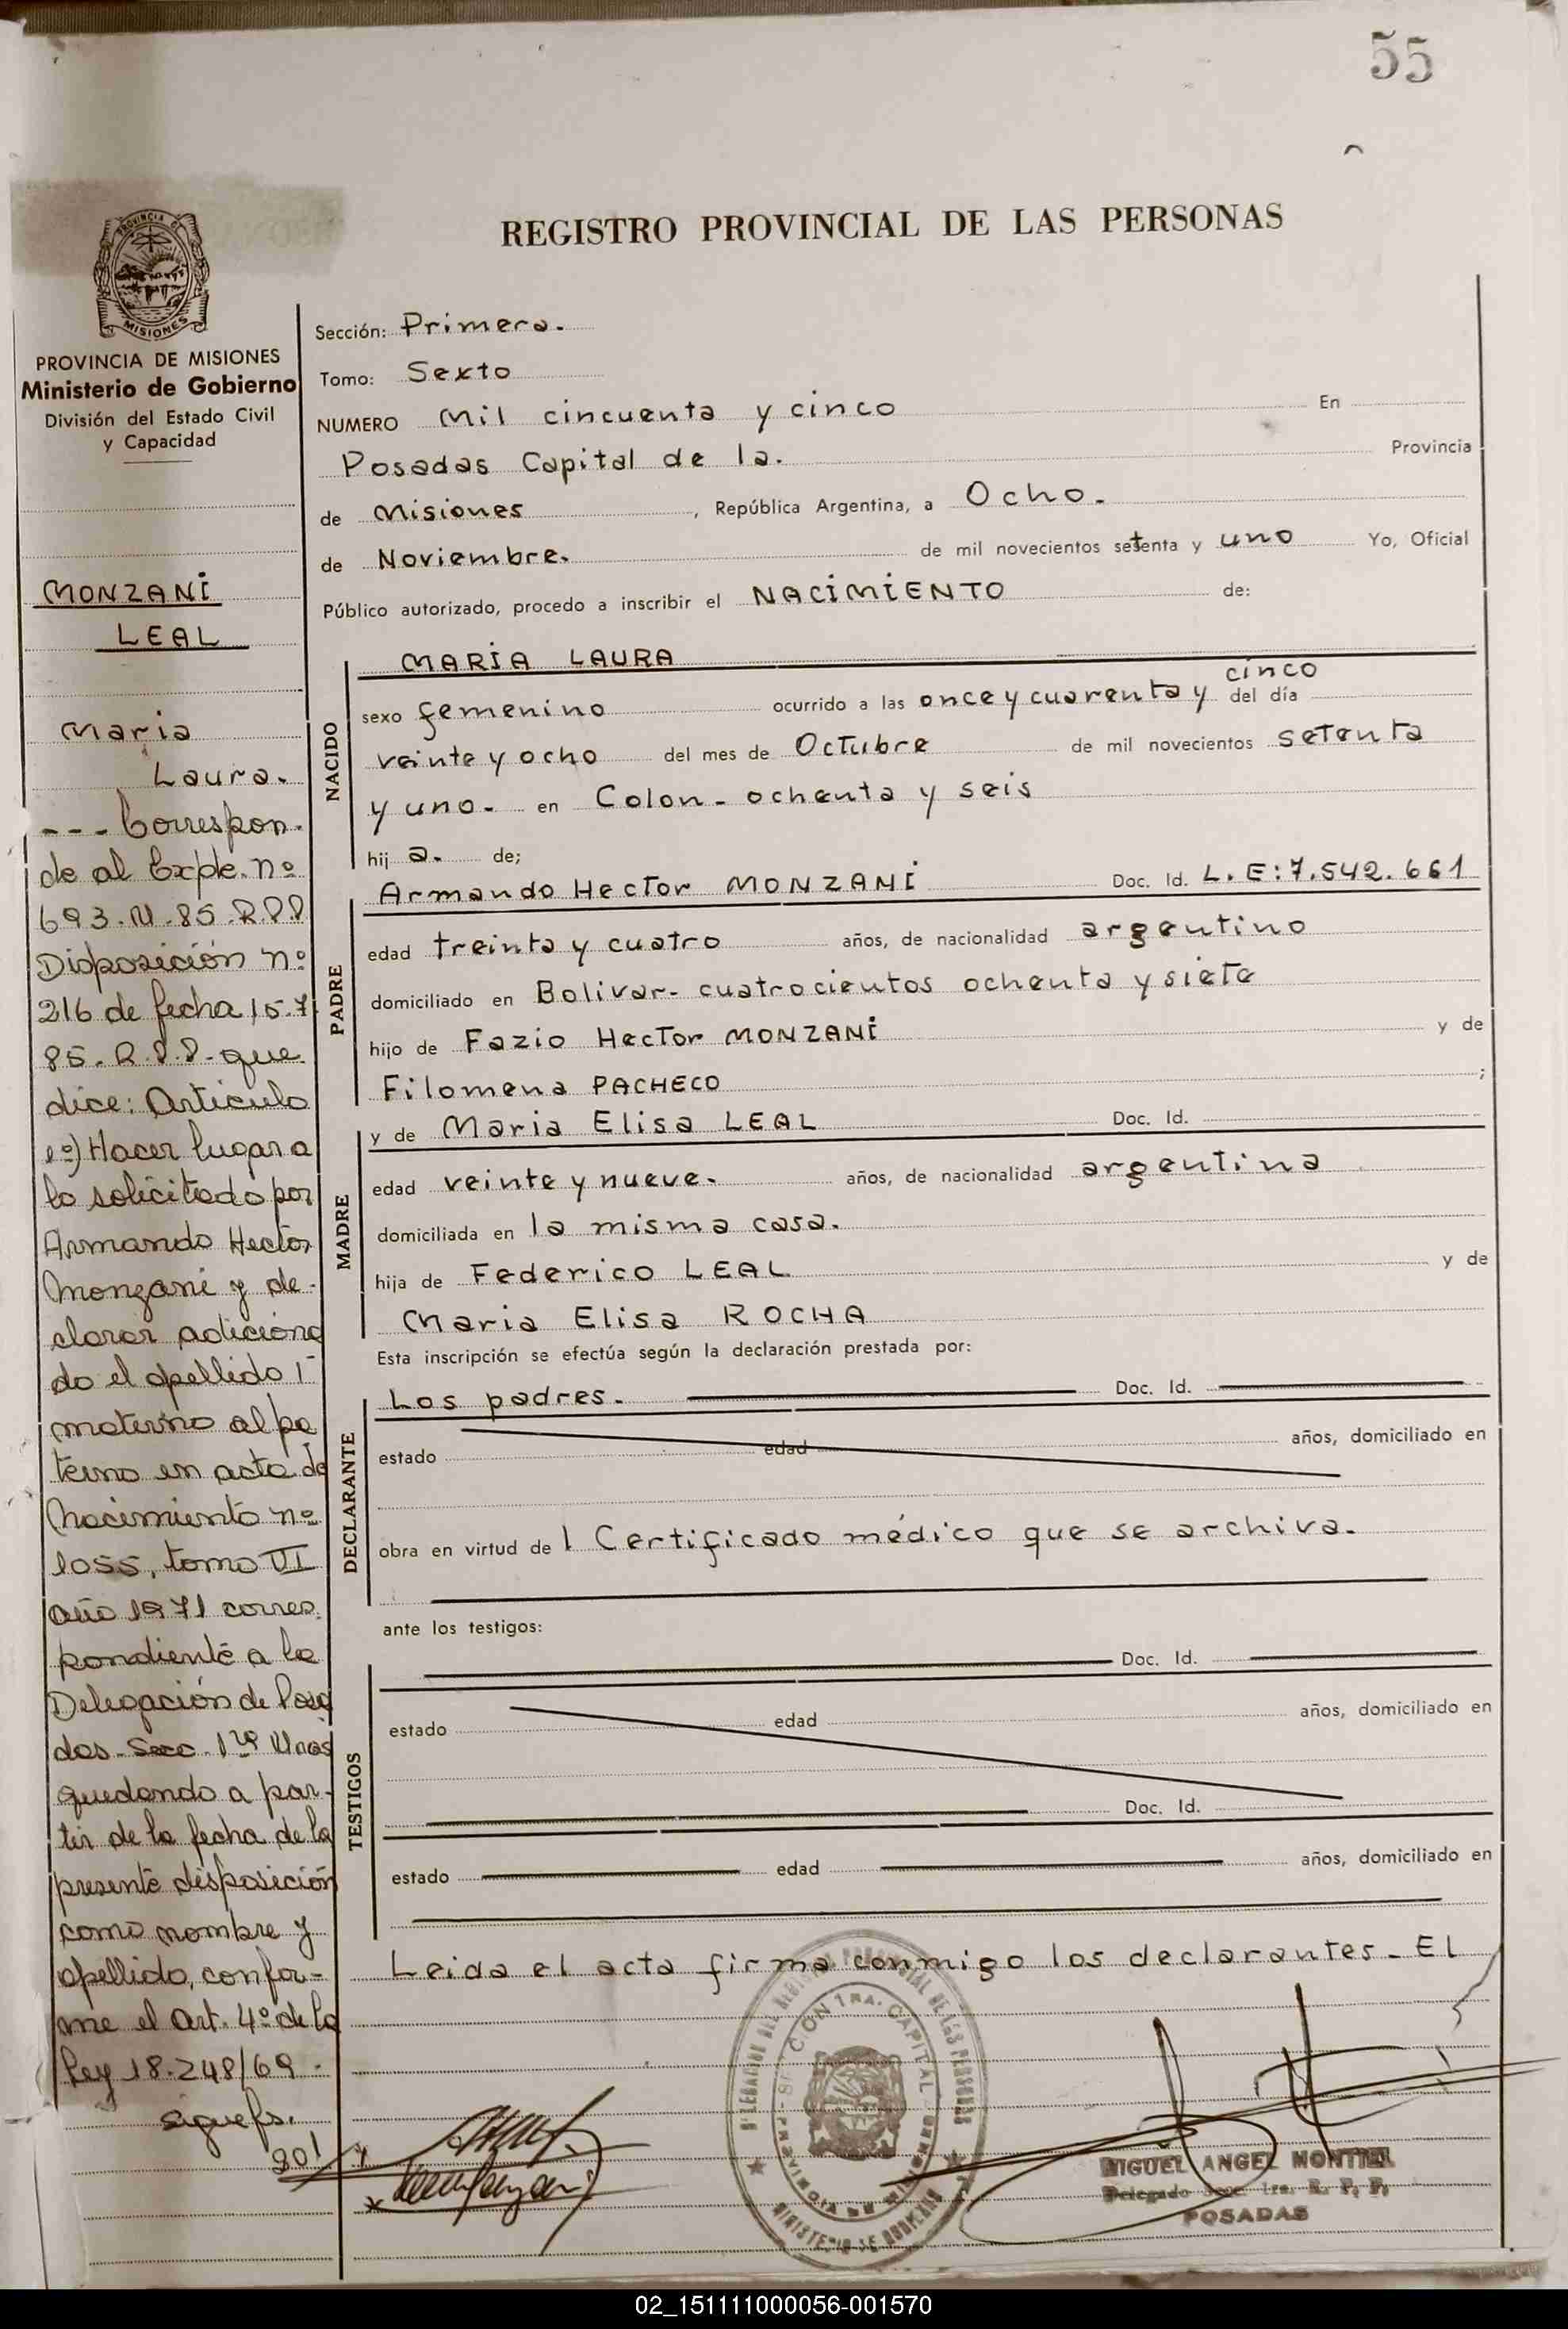 55
REGISTRO PROVINCIAL DE LAS PERSONAS
PROVINCIA
MISIONES
PROVINCIA DE MISIONES
Ministerio de Gobierno
División del Estado Civil
y Capacidad
MONZANI
LEAL
Maria
Laura.
--- Correspon-
de al Expte. nº
693.M.85.R.P.P
Disposición nº
216 de fecha 15.7
85. R.P.P. que
dice: Artículo
1º) Hacer lugar a
lo solicitado por
Armando Hector
Monzani y de-
clarar adiciona
do el apellido
materno al pa
terno en acta de
Nacimiento nº
1055, tomo VI
año 1971 corres
pondiente a la
Delegación de Posa
das - Secc. 1ra
quedando a par-
tir de la fecha de la
presente disposición
como nombre y
apellido, confor-
me el Art. 4º de la
ley 18.248/69.-
sigue fs.
201
Sección: Primera.
Tomo: Sexto
NUMERO Mil cincuenta y cinco En
Posadas Capital de la. Provincia
de Misiones, República Argentina, a Ocho.
de Noviembre. de mil novecientos setenta y uno Yo, Oficial
Público autorizado, procedo a inscribir el NACIMIENTO de:
NACIDO
MARIA LAURA
cinco
sexo femenino ocurrido a las once y cuarenta y del día
veinte y ocho del mes de Octubre de mil novecientos setenta
y uno. en Colon - ochenta y seis
hij a. de;
PADRE
Armando Hector MONZANI Doc. Id. L.E:7.542.661
edad treinta y cuatro años, de nacionalidad argentino
domiciliado en Bolivar - cuatrocientos ochenta y siete
hijo de Fazio Hector MONZANI y de
Filomena PACHECO ;
MADRE
y de Maria Elisa LEAL Doc. Id.
edad veinte y nueve. años, de nacionalidad argentina
domiciliada en la misma casa.
hija de Federico LEAL y de
Maria Elisa ROCHA
Esta inscripción se efectúa según la declaración prestada por:
DECLARANTE
Los padres. Doc. Id.
estado edad años, domiciliado en
obra en virtud de 1 Certificado médico que se archiva.
ante los testigos:
TESTIGOS
Doc. Id.
estado edad años, domiciliado en
Doc. Id.
estado edad años, domiciliado en
Leida el acta firma conmigo los declarantes - El
MIGUEL ANGEL MONTIEL
Delegado Secc. 1ra. R. P. P.
POSADAS
02_151111000056-001570